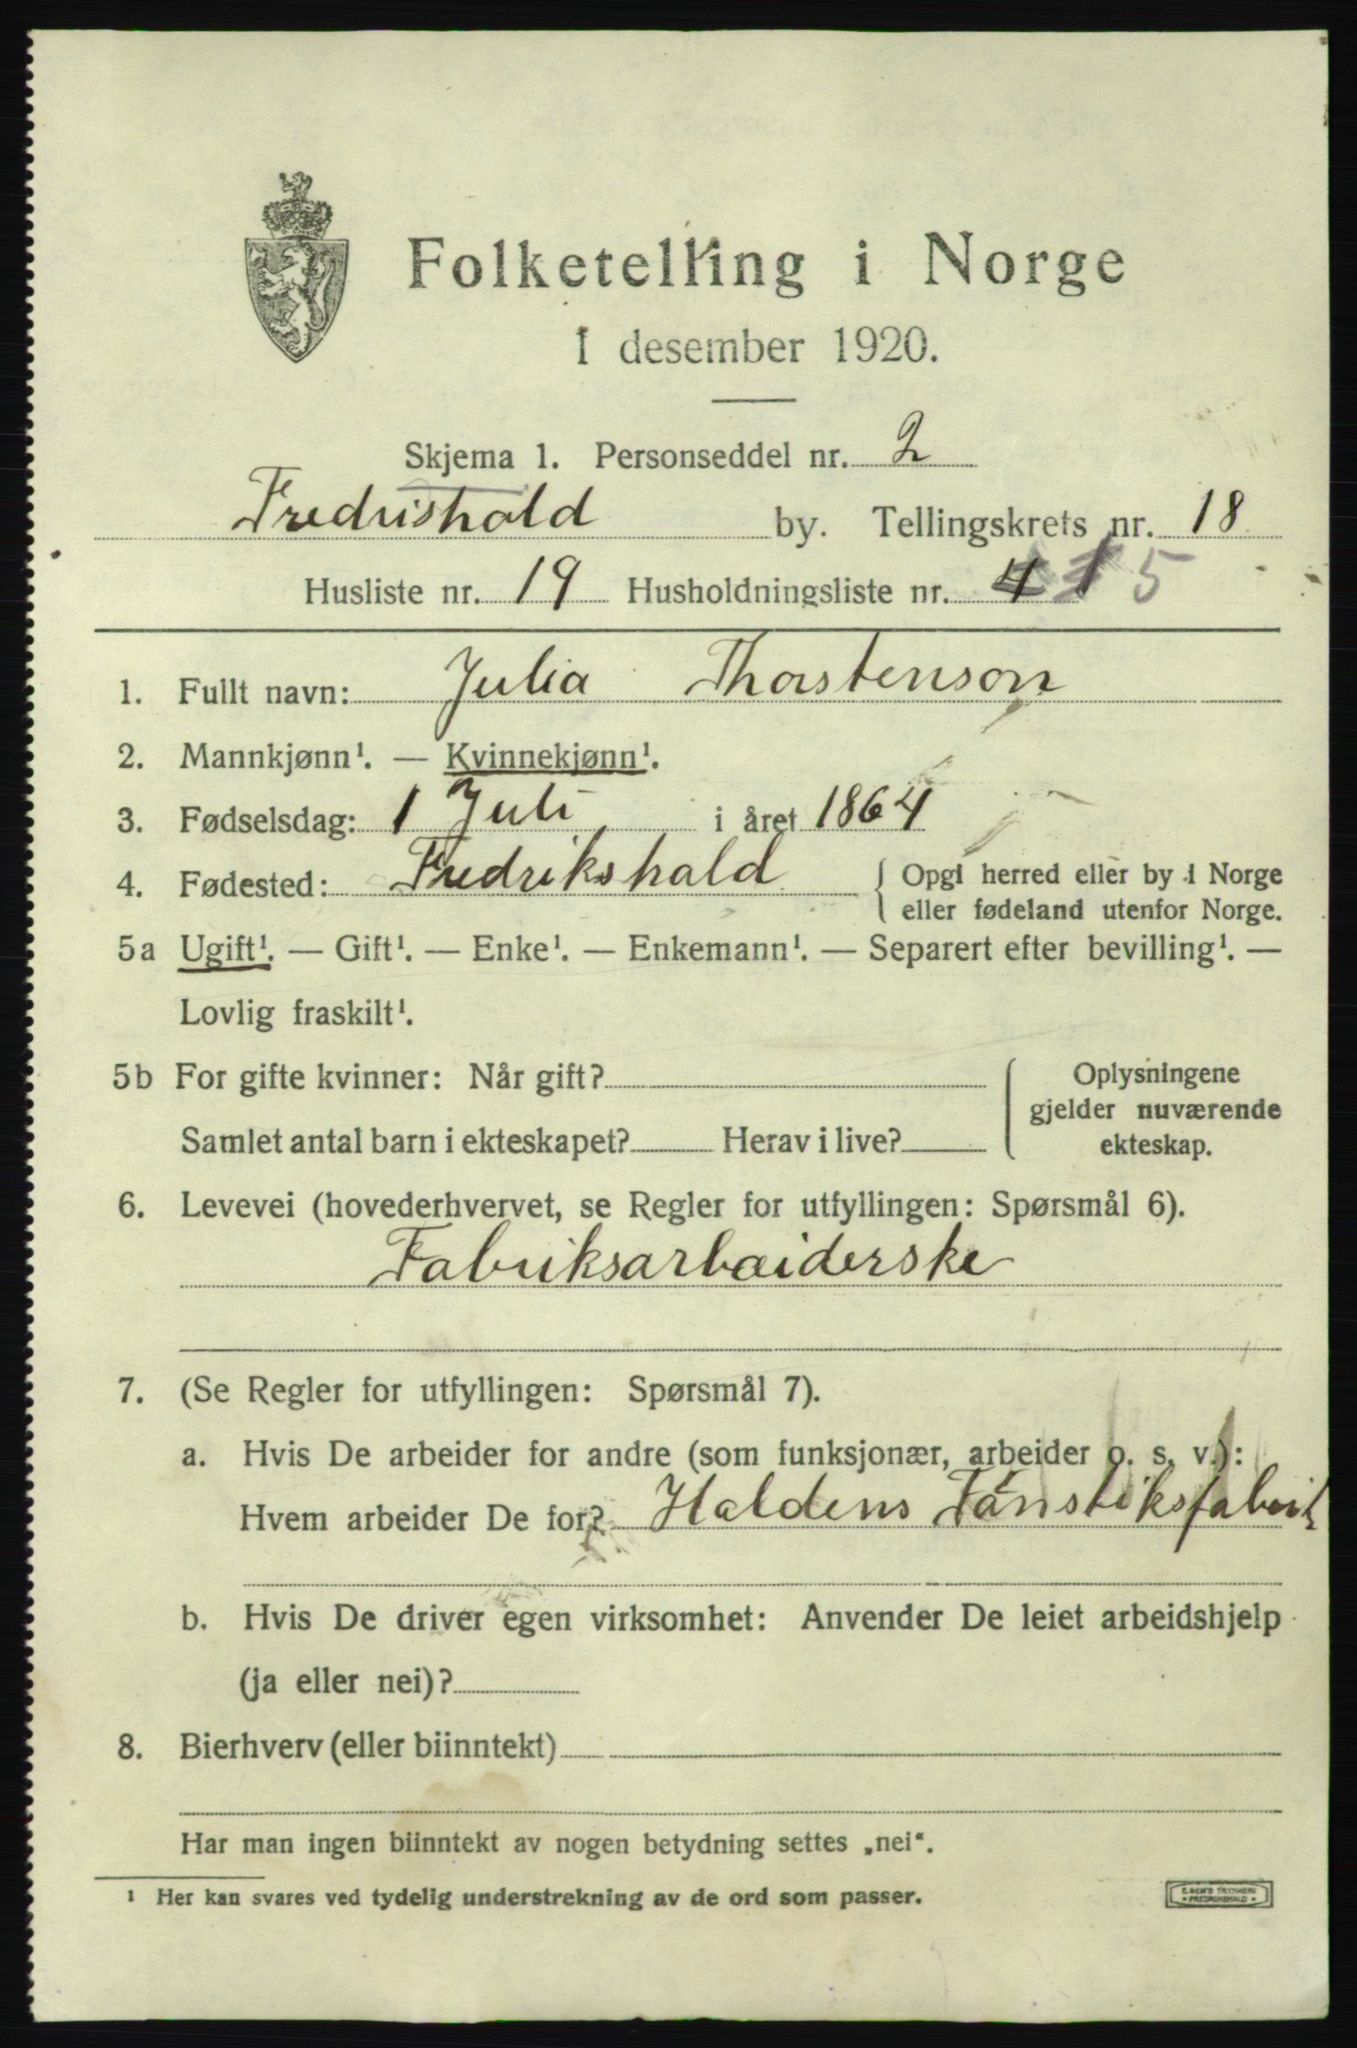 Folketelling i Norge
1 desember 1920.
Skjema 1. Personseddel nr. 2
Fredrishald by. Tellingskrets nr. 18
Husliste nr. 19 Husholdningsliste nr. 5
1. Fullt navn: Julia Thorstenson
2. Mannkjønn¹. — Kvinnekjønn¹.
3. Fødselsdag: 1 Juli i året 1864
4. Fødested: Fredrikshald { Opgi herred eller by i Norge
eller fødeland utenfor Norge.
5a Ugift¹. — Gift¹. — Enke¹. — Enkemann¹. — Separert efter bevilling¹. —
Lovlig fraskilt¹.
5b For gifte kvinner: Når gift? Oplysningene
gjelder nuværende
Samlet antal barn i ekteskapet? Herav i live? ekteskap.
6. Levevei (hovederhvervet, se Regler for utfyllingen: Spørsmål 6).
Fabriksarbaiderske
7. (Se Regler for utfyllingen: Spørsmål 7).
a. Hvis De arbeider for andre (som funksjonær, arbeider o. s. v.):
Hvem arbeider De for? Haldens Tänstiksfabrik
b. Hvis De driver egen virksomhet: Anvender De leiet arbeidshjelp
(ja eller nei)?
8. Bierhverv (eller biinntekt)
Har man ingen biinntekt av nogen betydning settes „nei“.
¹ Her kan svares ved tydelig understrekning av de ord som passer.
FREDRIKSHALD